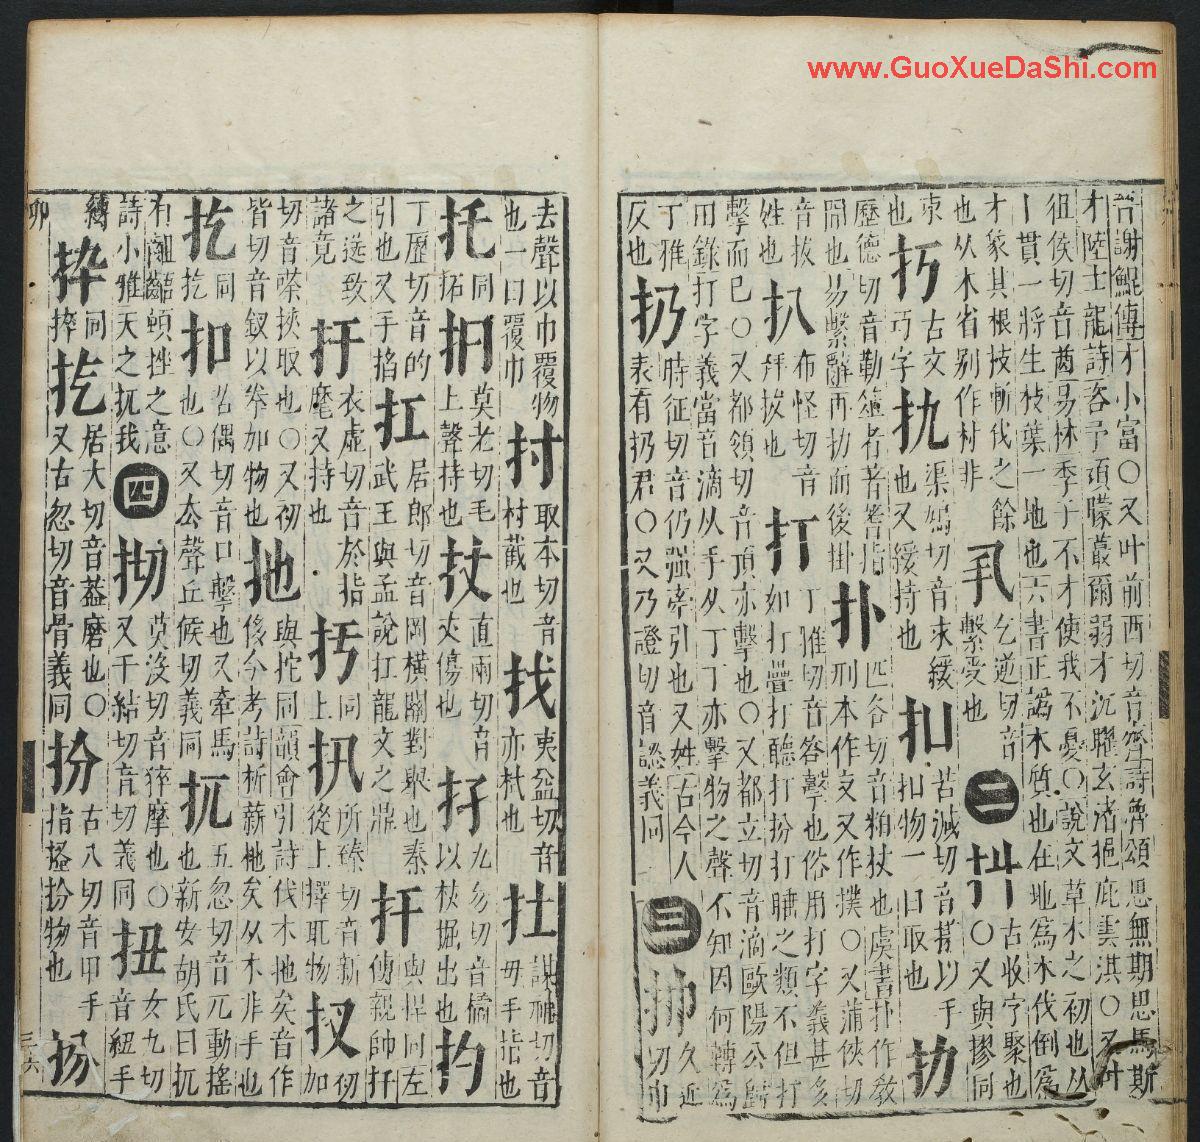 www.GuoXueDaShi.com
晉謝鯤傳才小富〇又叶前西切音齊詩魯頌思無期思馬斯
才陸士龍詩吝予頑曚叢爾弱才沉曜玄渚挹庇雲淇〇又叶
徂侯切音
易林季子不才使我不憂〇說文草木之初也从
丨貫一將生枝葉一地也六書正譌木質也在地爲木伐倒爲
才象其根枝斬伐之餘
繫受也
二
古收字聚也〇又與摎同
也从木省别作材非
乞逆切音
束也
古文丂字
渠尤切音求緩也又緩持也
扣
苦減切音
以手扣物一曰取也
扐
歷德切音勒筮者著蓍指間也易繫辭再扐而後掛
扑
匹各切音粕杖也虞書扑作敎刑本作攴又作撲〇又蒲俠切
音拔姓也
扒
布怪切音拜拔也
打
丁雅切音答擊也俗用打字義甚多如打疊打聽打扮打瞌之類不但打
擊而已〇又都領切音頂亦擊也〇又都立切音滴歐陽公歸
田錄打字義當音滴从手从丁丁亦擊物之聲不知因何轉爲
丁雅反也
扔
時征切音仍强牽引也又姓古今人表有扔君〇又乃證切音認義同
三
久近切巾
去聲以巾覆物也一曰覆巾
扗
取本切音村截也
找
夷益切音亦杙也
謀種切音毋手指也
托
同拓
莫老切毛上聲持也
扙
直兩切音丈傷也
九勿切音倔以杖掘出也
扚
丁歷切音的引也又手掐
扛
居郎切音岡橫關對舉也秦武王與孟說扛龍文之鼎
扞
與捍同左傳親帥扞之送致諸竟
扜
衣虛切音於指麾又持也
同上
扟
所臻切音新從上擇取物
扠
初加切音嗏挾取也〇又初皆切音釵以拳加物也
扡
與拕同韻會引詩伐木扡矣音侈今考詩析薪扡矣从木非手也
扢
同扢
扣
苦偶切音口擊也又牽馬也〇又去聲丘候切義同
扤
五忽切音兀動搖也新安胡氏曰扤有齟齬頓挫之意詩小雅天之扤我
四
莫沒切音
摩也〇又千結切音切義同
扭
女九切音紐手縛
捽
同捽
扢
居大切音葢磨也〇又古忽切音骨義同
扮
古八切音甲手指搔扮物也
扬
卯
三六